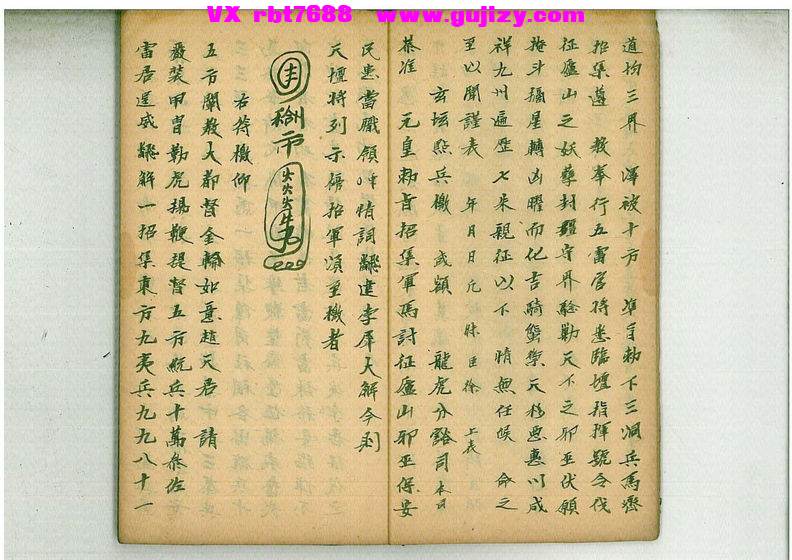 VX rbt7688 www.gujizy.com
道均三界 澤被十方 準旨勅下三洞兵馬齊
招集遵 教奉行五雷官將悉臨壇指揮號令伐
征廬山之妖孽封疆守界驗勅天下之邪巫伏願
拖斗彊星轉凶曜而化吉騎蟹禦天移惠以咸
祥九州遍歷七來親征以下 情無任候 命之
至以聞謹表 年月日凡昧臣徐 上表
玄坛點兵檄 或頴 龍虎分豁司本日
恭准 元皇勅旨招集軍馬討征廬山邪巫保安
民恵當職領 情詞 建李犀大解今到
天壇將列示條招軍須至檄者
右符檄仰
五方關教大都督金輪如意趙天君 請
嚴裝甲胄勒虎揚鞭提督五方統兵十萬叅佐
雷居運威 解一招集東方九夷兵九九八十一